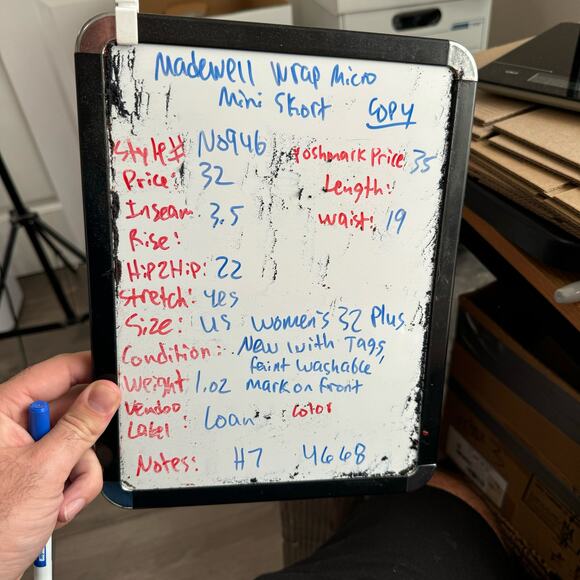 Madewell Wrap Micro
Mini Skort COPY
Style# No946
Poshmark Price 35
Price: 32
Length:
Inseam 3.5
Waist: 19
Rise:
Hip2Hip: 22
Stretch: yes
Size: US Women's 32 Plus
Condition: New with Tags,
faint washable
Weight 1.02 mark on front
Vendoo
Label: Loan color
Notes: H7 4668